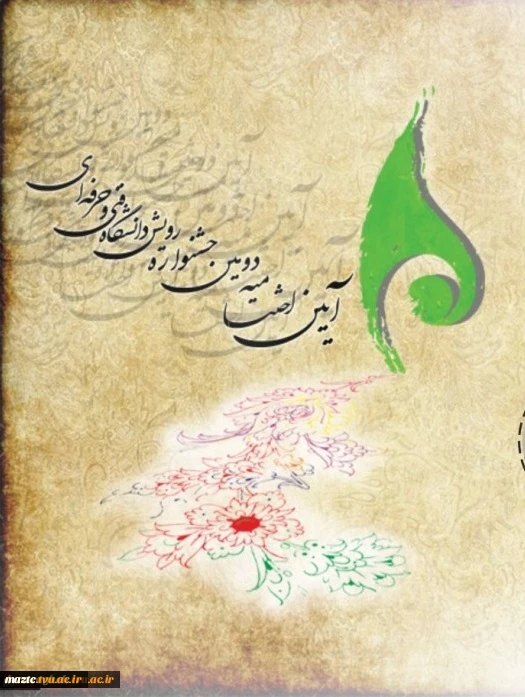 آیین اختتامیه دومین جشنواره رویش دانشگاه فنی و حرفه‌ای